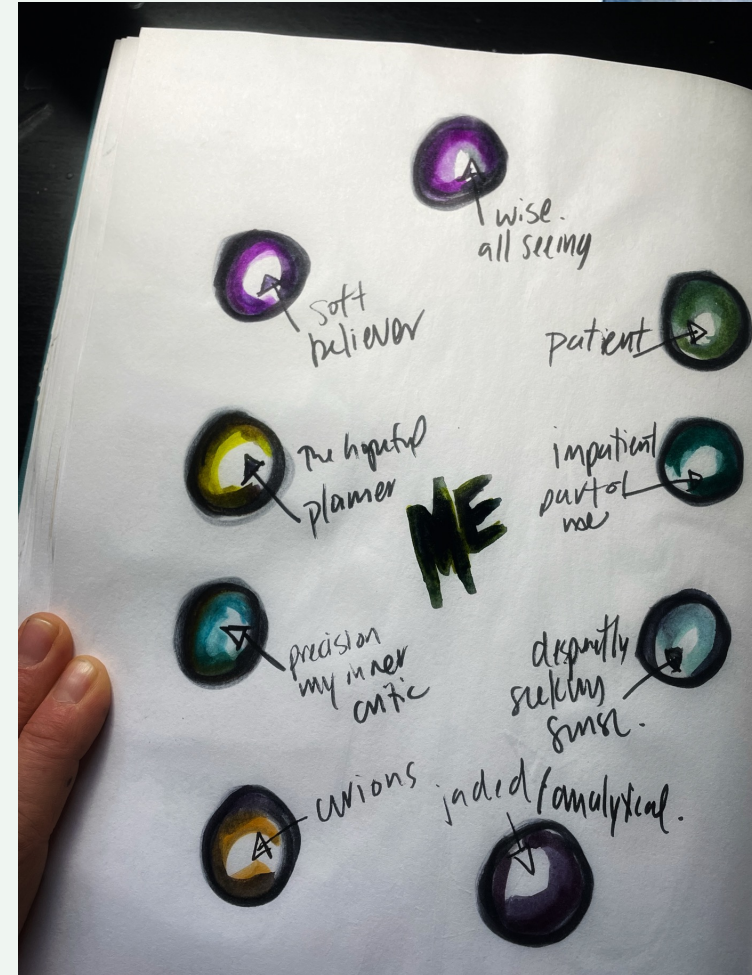 wise.
all seeing
soft
believer
patient
The hopeful
planner
impatient
part of
me
ME
precision
my inner
critic
desperatly
seeking
sense.
curious
jaded/analytical.